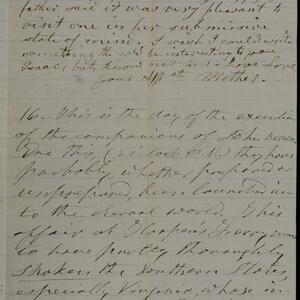 father said it was very pleasant to
visit one in per submissive
state of mind. I wish I could write
something that wd be interesting to you
Isaac, but know not how. Give Love
Your aff Mother.
16. This is the day of the execution
of the companions of John Brown.
One this, (2 o'clock P.M.) they have
probably, whether, prepared or
unprepared, been launched in-
to the eternal world. This
affair at Harpers Ferry seems
to have pretty thoroughly
shaken the Southern States,
especially Virginia, whose in-